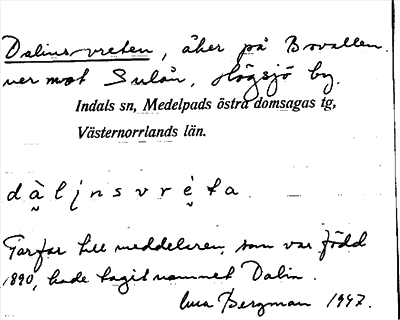 Dalinsvreten, åker på Bovallen
ner mot Sulån, Högsjö by.
Indals sn, Medelpads östra domsagas tg,
Västernorrlands län.
dà̰lįnsvrè̯ta
Farfar till meddelaren, som var född
1890, hade tagit namnet Dalin.
Bergman 1947.